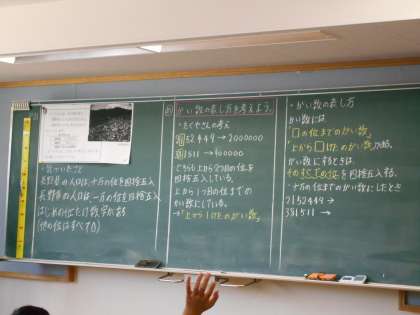 ・気づいたこと
長野県の人口は、十万の位を四捨五入
長野市の人口は、一万の位を四捨五入
はじめの位だけ数字がある
(他の位はすべて0)
がい数の表し方を考えよう。
・たくやさんの考え
2152449→2000000
381511→400000
どちらも上から2つ目の位を
四捨五入している。
上から1つ目の位までの
がい数にしている。
→「上から1けたのがい数」
・がい数の表し方
がい数には
「□の位までのがい数」
「上から□けたのがい数」がある。
がい数にするときは、
そのすぐ下の位を四捨五入する。
・十万の位までのがい数にしたとき
2152449→
381511→